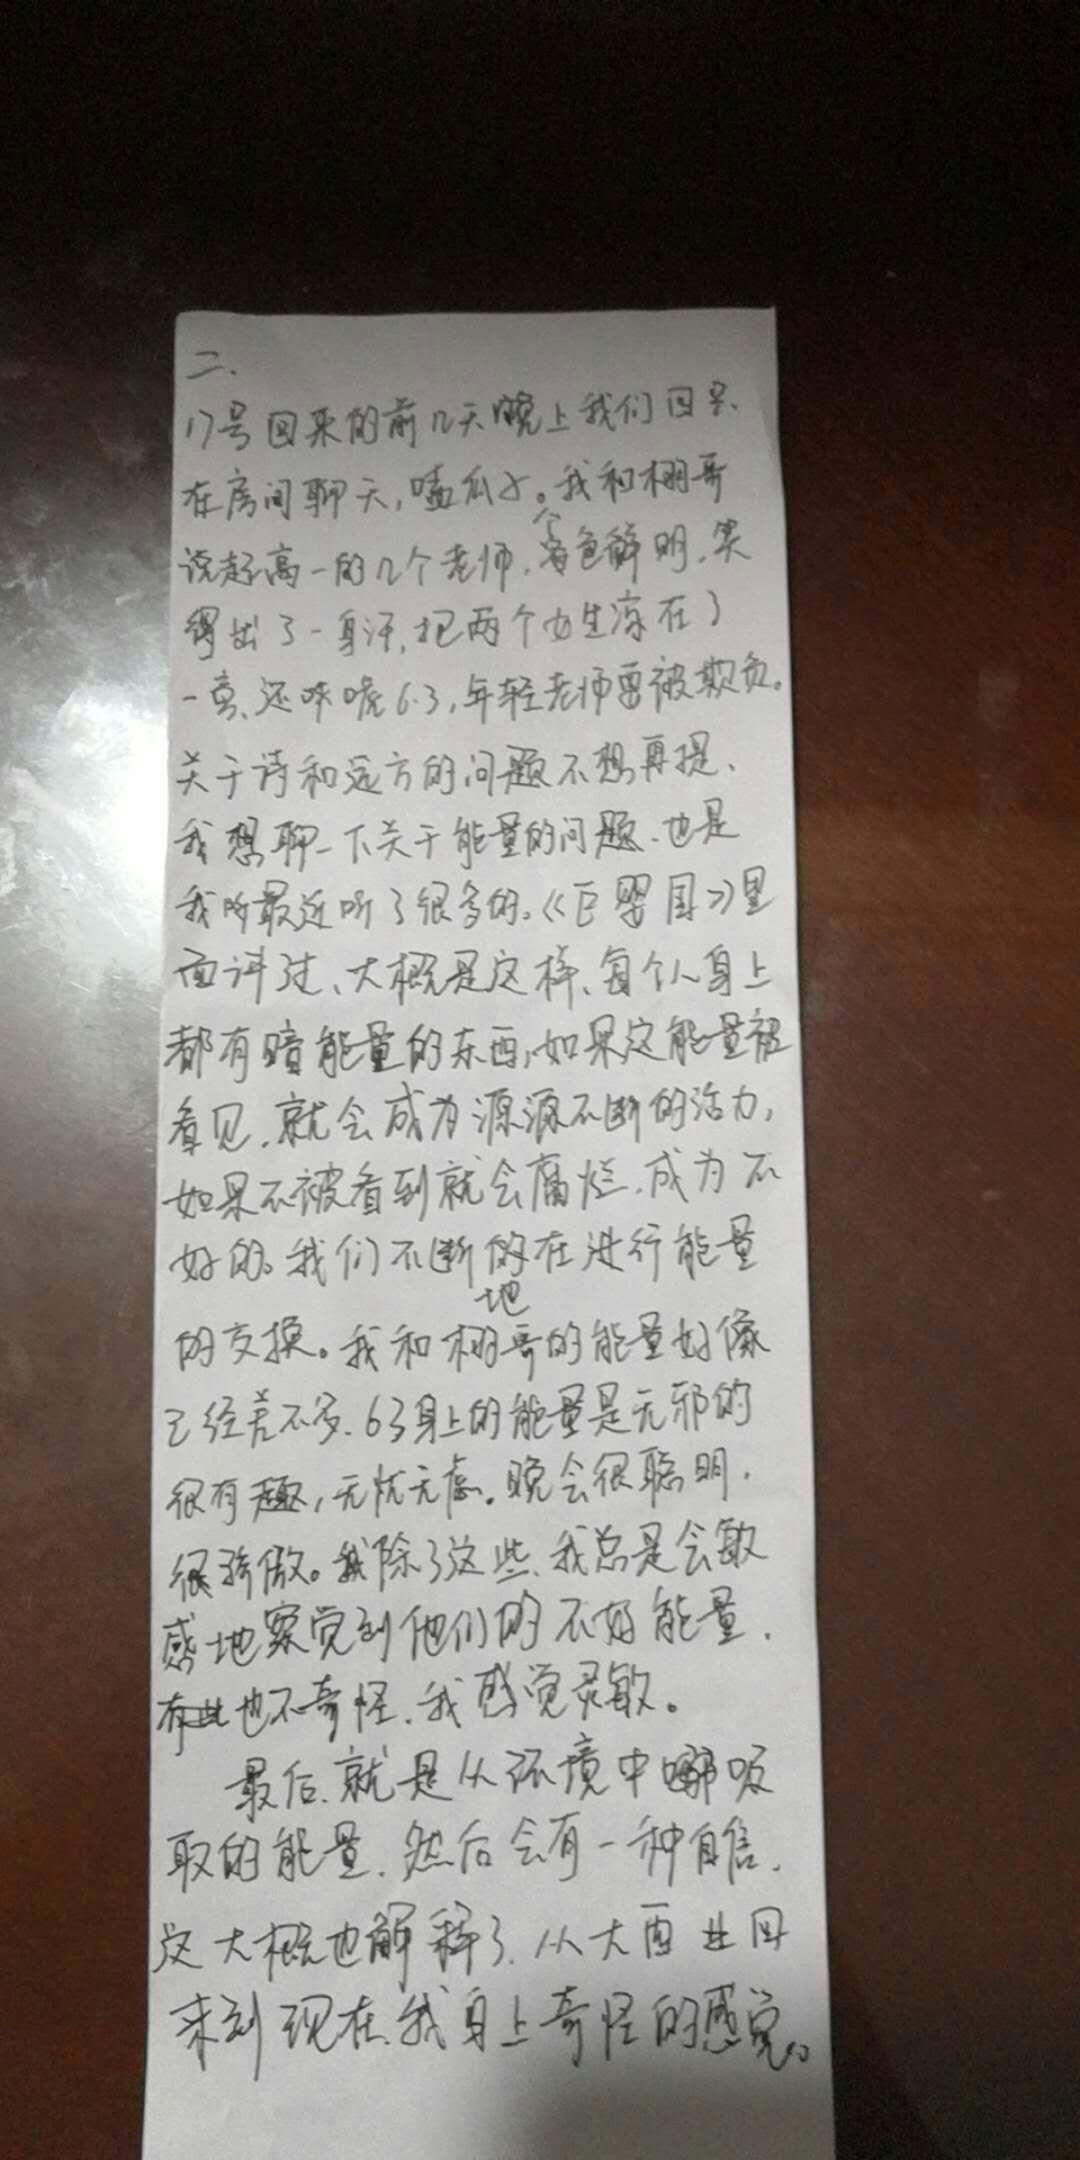 二、
17号回来的前几天晚上我们四只
在房间聊天,嗑瓜子。我和棚哥
说起高一的几个老师,个色鲜明,笑
得出了一身汗,把两个女生凉在了
一旁、还咪唬63,年轻老师要被欺负。
关于诗和远方的问题不想再提、
我想聊一下关于能量的问题、也是
我所最近听了很多的。《巨婴国》里
面讲过、大概是这样、每个人身上
都有暗能量的东西,如果这能量被
看见,就会成为源源不断的活力,
如果不被看到就会腐烂,成为不
好的。我们不断地在进行能量
的交换。我和棚哥的能量好像
已经差不多、63身上的能量是无邪的
很有趣,无忧无虑。晚会很聪明,
很骄傲。我除了这些、我总是会敏
感地察觉到他们的不好能量,
有些也不奇怪、我感觉灵敏。
最后、就是从环境中吸
取的能量、然后会有一种自信,
这大概也解释了、从大西北回
来到现在、我身上奇怪的感觉。